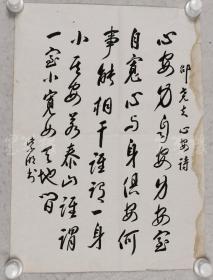 邵尧夫心安诗
心安身自安身安室
自寬心与身俱安何
事能相干誰謂一身
小其安若泰山誰謂
一室小寬如天地間
书